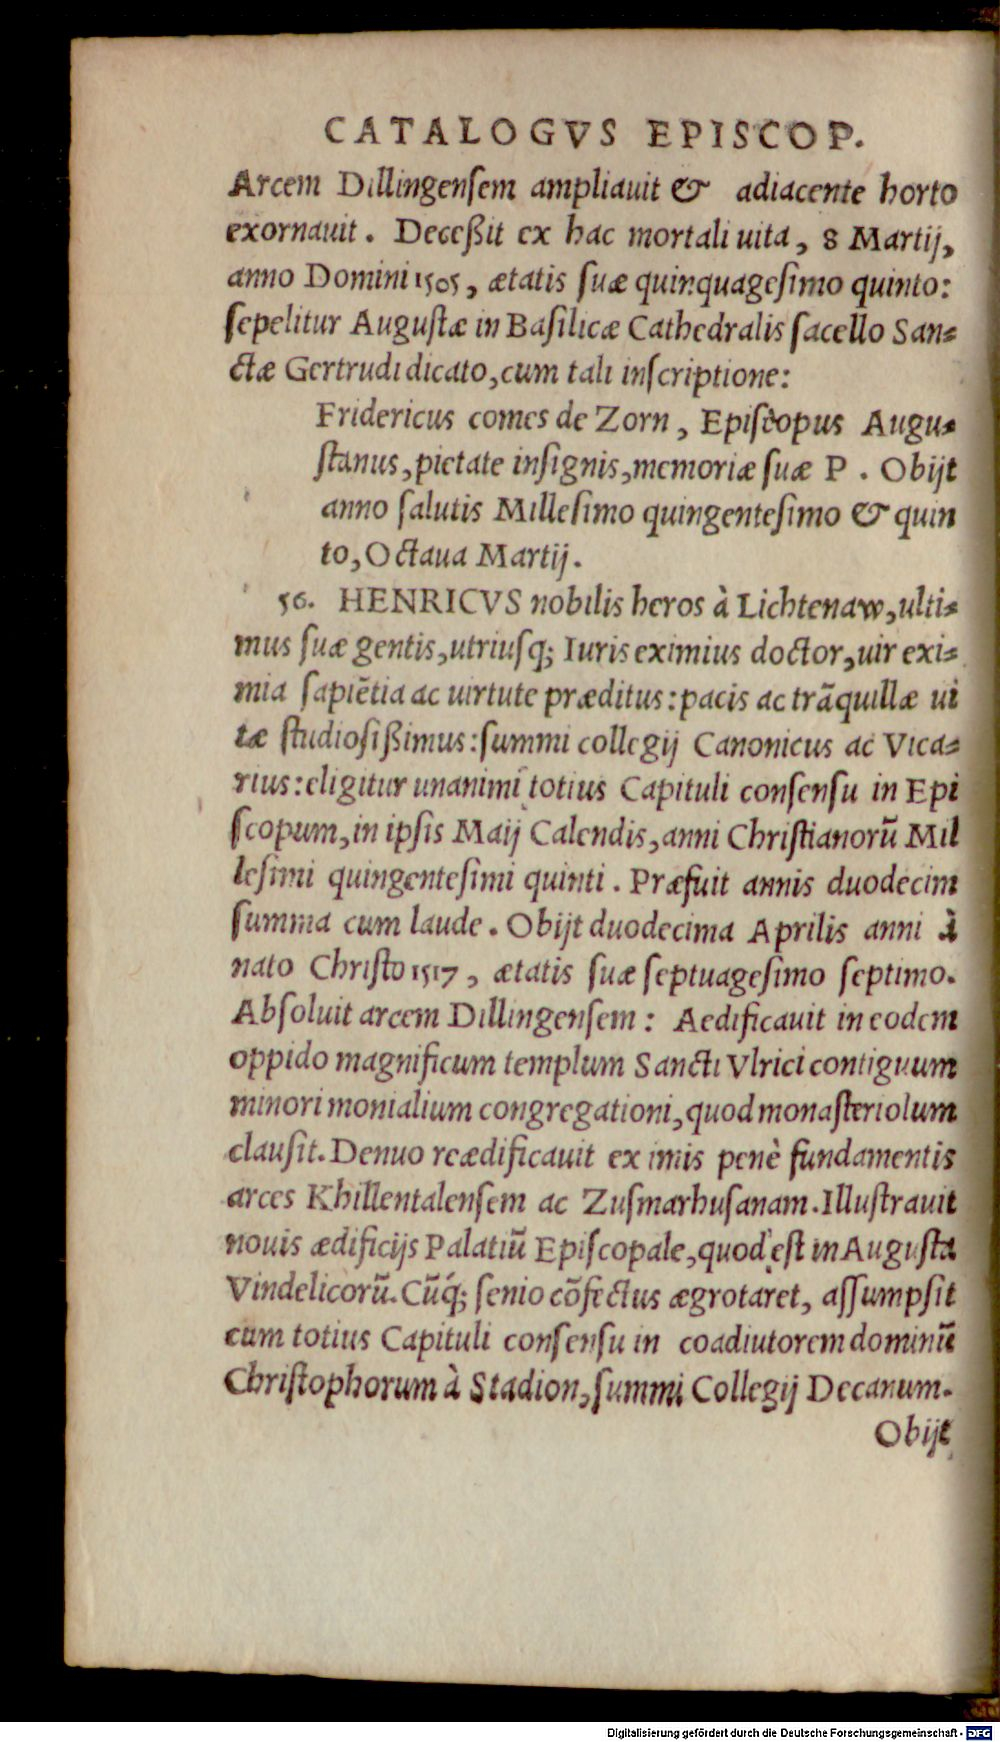 CATALOGVS EPISCOP.
Arcem Dillingenſem ampliauit & adiacente horto
exornauit. Deceßit ex hac mortali uita, 8 Martij,
anno Domini 1505, ætatis ſuæ quinquageſimo quinto:
ſepelitur Auguſtæ in Baſilicæ Cathedralis ſacello San-
ctæ Gertrudi dicato, cum tali inſcriptione:
Fridericus comes de Zorn, Epiſcopus Augu-
ſtanus, pietate inſignis, memoriæ ſuæ P. Obijt
anno ſalutis Milleſimo quingenteſimo & quin
to, Octaua Martij.
56. HENRICVS nobilis heros à Lichtenaw, ulti-
mus ſuæ gentis, utriuſq; Iuris eximius doctor, uir exi-
mia ſapiẽtia ac uirtute præditus: pacis ac trãquillæ ui
tæ ſtudioſißimus: ſummi collegij Canonicus ac Vica-
rius: eligitur unanimi totius Capituli conſenſu in Epi
ſcopum, in ipſis Maij Calendis, anni Chriſtianorũ Mil
leſimi quingenteſimi quinti. Præfuit annis duodecim
ſumma cum laude. Obijt duodecima Aprilis anni à
nato Chriſto 1517, ætatis ſuæ ſeptuageſimo ſeptimo.
Abſoluit arcem Dillingenſem: Aedificauit in eodem
oppido magnificum templum Sancti Vlrici contiguum
minori monialium congregationi, quod monaſteriolum
clauſit. Denuo reædificauit ex imis penè fundamentis
arces Khillentalenſem ac Zuſmarhuſanam. Illuſtrauit
nouis ædificijs Palatiũ Epiſcopale, quod eſt in Auguſta
Vindelicorũ. Cũq́; ſenio cõfectus ægrotaret, aſſumpſit
cum totius Capituli conſenſu in coadiutorem dominũ
Chriſtophorum à Stadion, ſummi Collegij Decanum.
Obijt
Digitalisierung gefördert durch die Deutsche Forschungsgemeinschaft - DFG